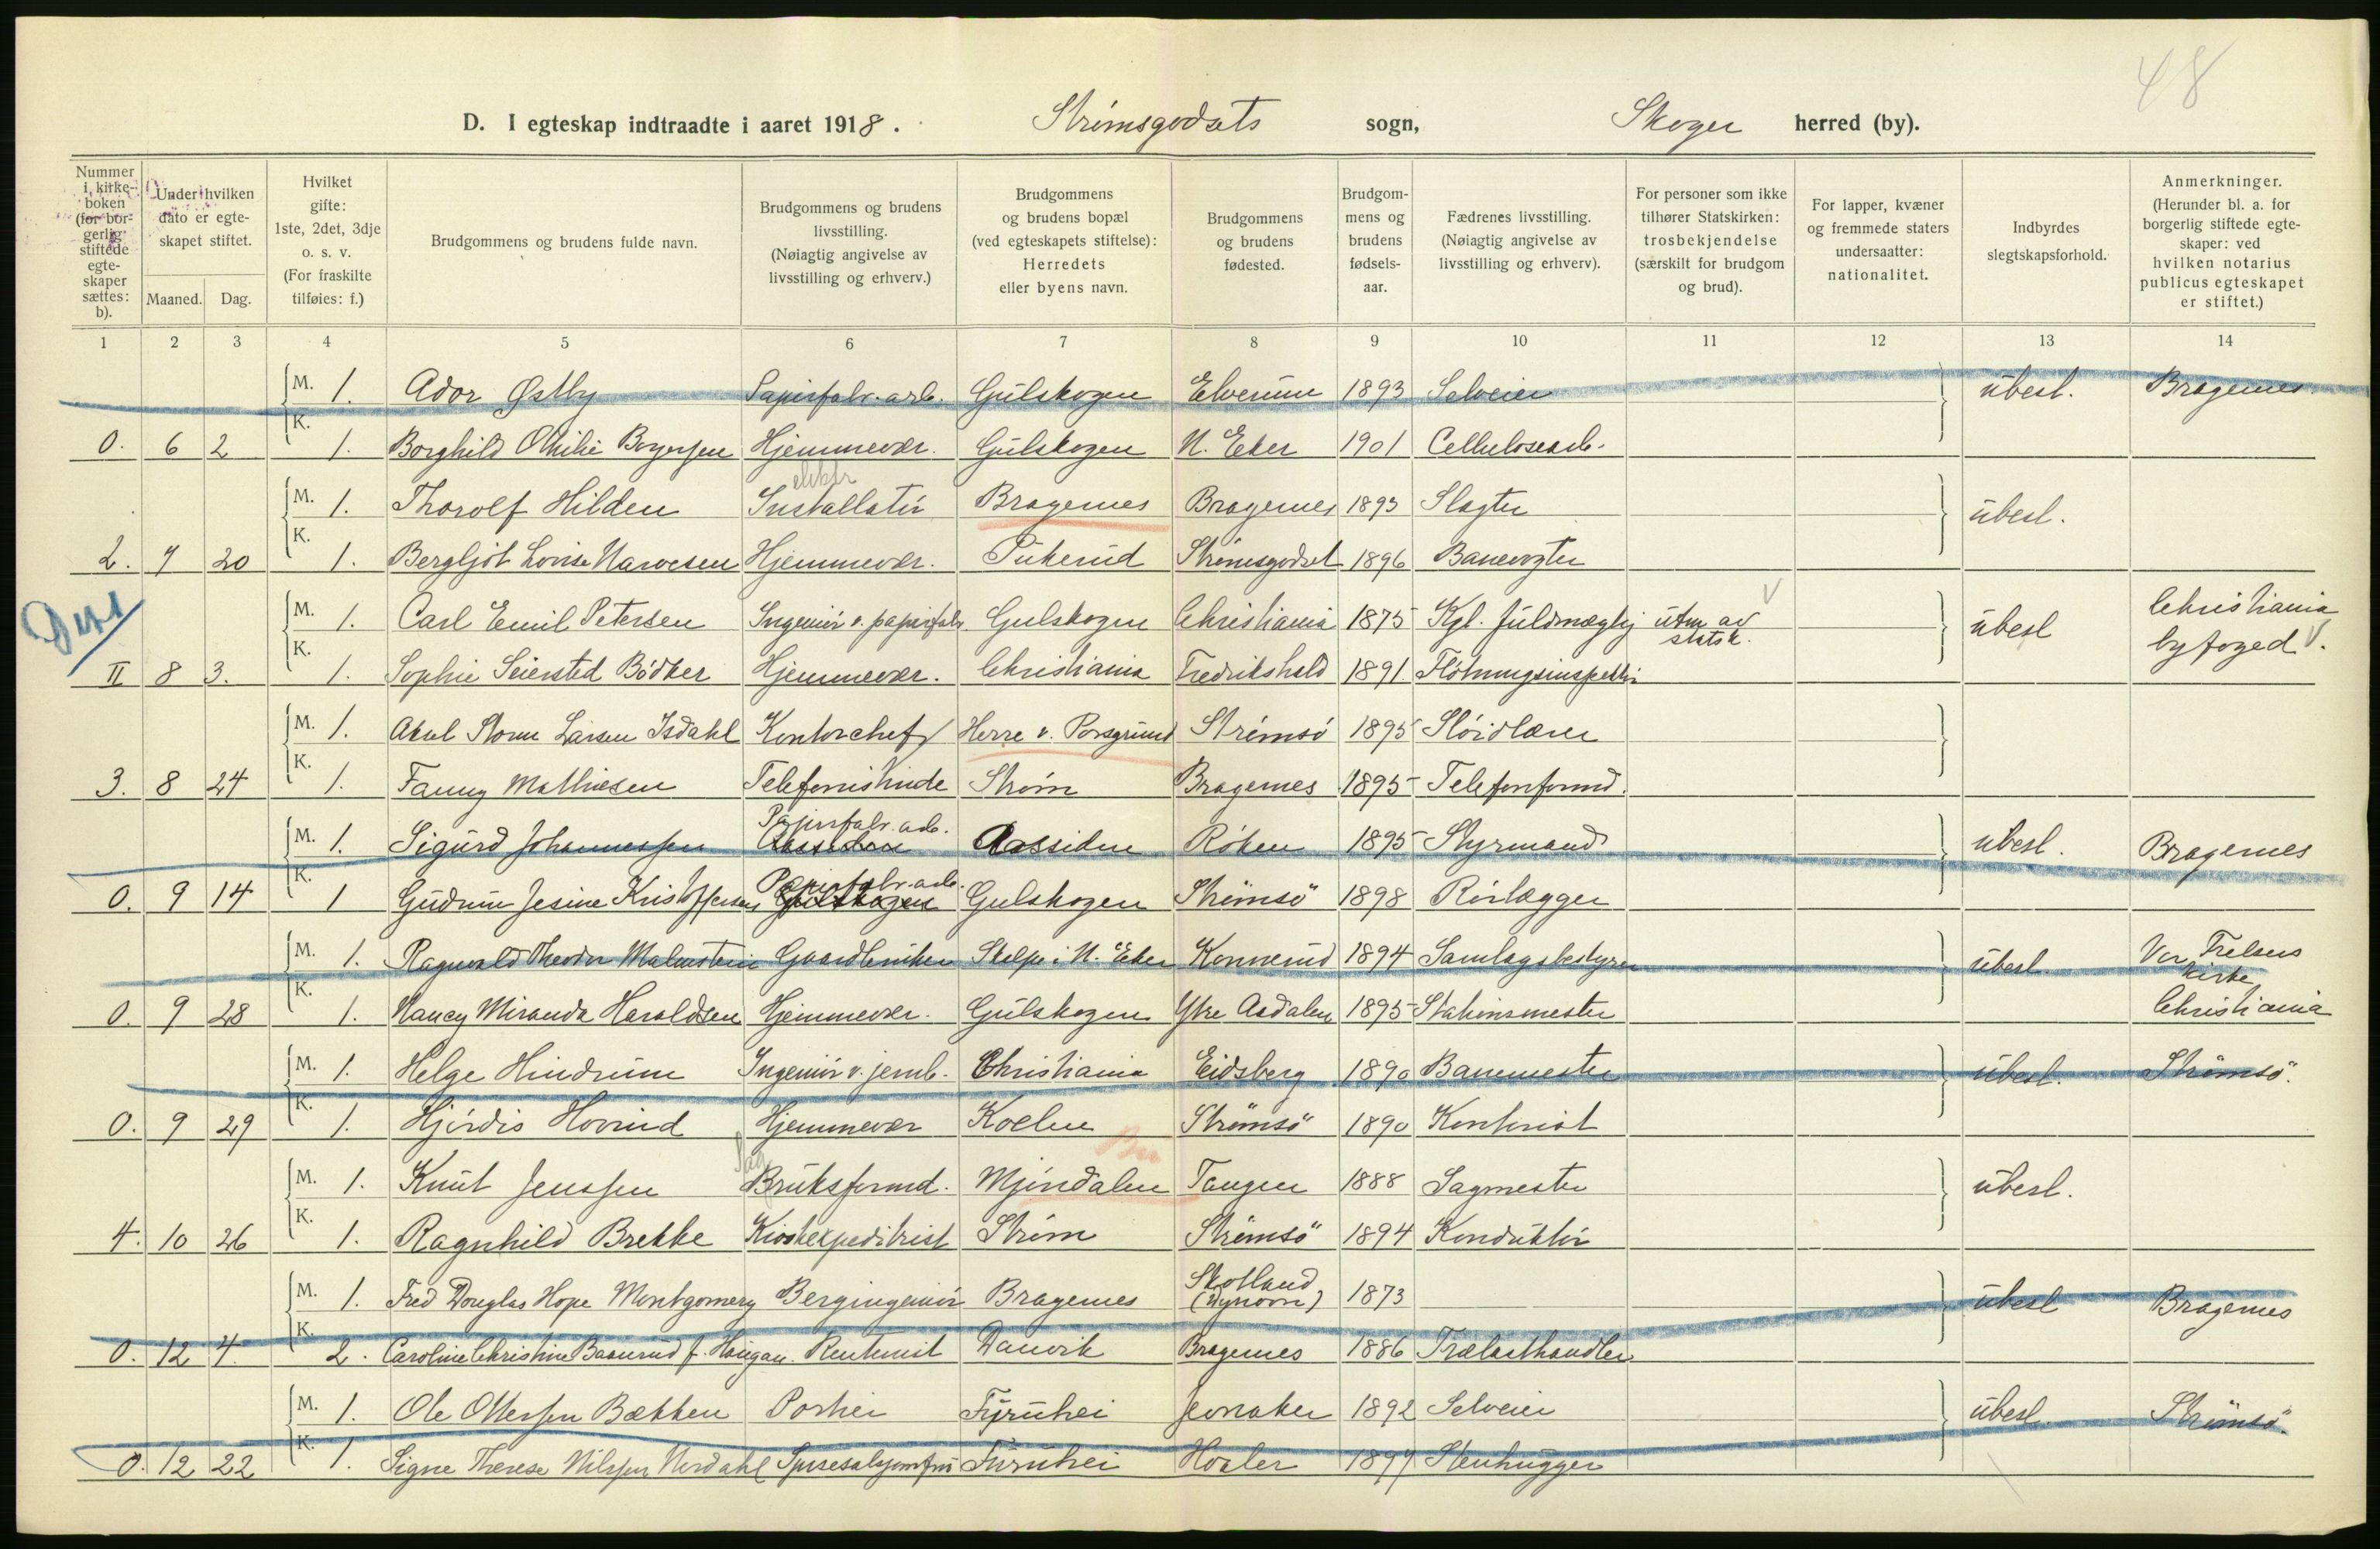 48
D. I egteskap indtraadte i aaret 1918. Strømsgodsets sogn, Skoger herred (by).
Nummer i kirkeboken (for borgerlig stiftede egteskaper sættes: b).
Under hvilken dato er egteskapet stiftet.
Maaned. Dag.
Hvilket gifte: 1ste, 2det, 3dje o. s. v. (For fraskilte tilføies: f.)
Brudgommens og brudens fulde navn.
Brudgommens og brudens livsstilling. (Nøiagtig angivelse av livsstilling og erhverv.)
Brudgommens og brudens bopæl (ved egteskapets stiftelse): Herredets eller byens navn.
Brudgommens og brudens fødested.
Brudgommens og brudens fødselsaar.
Fædrenes livsstilling. (Nøiagtig angivelse av livsstilling og erhverv).
For personer som ikke tilhører Statskirken: trosbekjendelse (særskilt for brudgom og brud).
For lapper, kvæner og fremmede staters undersaatter: nationalitet.
Indbyrdes slegtskapsforhold.
Anmerkninger. (Herunder bl. a. for borgerlig stiftede egteskaper: ved hvilken notarius publicus egteskapet er stiftet.)
1 2 3 4 5 6 7 8 9 10 11 12 13 14
M. 1. Ador Østby Papirfabr. arb. Gulskogen Elverum 1893 Selveier ubesl. Bragernes
0. 6 2 K. 1. Borghild Othilie Borgersen Hjemmevær. Gulskogen N. Eker 1901 Cellulosearb.
elektr
M. 1. Thorolf Hilden Installatør Bragernes Bragernes 1893 Slagter ubesl.
2. 7 20 K. 1. Bergljot Lovise Narvesen Hjemmevær. Pukerud Strømsgodset 1896 Banevogter
M. 1. Carl Emil Petersen Ingeniør v. papirfabr Gulskogen Christiania 1875 Kgl. fuldmægtig utm av statsk. ubesl Christiania byfoged.
II 8 3. K. 1. Sophie Seiersted Bödker Hjemmevær. Christiania Fredrikshald 1891. Fløtningsinspektør
M. 1. Aksel Storm Larsen Isdahl Kontorchef Herre v. Porsgrund Strømsø 1895 Sløidlærer
3. 8 24 K. 1. Fanny Mathiesen Telefonistinde Strøm Bragernes 1895 Telefonformd.
M. 1. Sigurd Johannessen Papirfabr. arb. Aassiden Røken 1895 Styrmand ubesl. Bragernes
0. 9 14 K. 1 Gudrun Jesine Kristoffersen Papirfabr. arb. Gulskogen Strømsö 1898 Rørlægger
M. 1. Ragnvald Theodor Malmstein Gaardbruker Stelpe i N. Eker Konnerud 1894 Samlagsbestyrer ubesl. Vor Frelsers kirke Christiania
0. 9 28 K. 1. Nancy Miranda Haraldsen Hjemmevær. Gulskogen Ytre Aadalen 1895 Stationsmester
M. 1. Helge Hindrum Ingeniør v. jernb. Christiania Eidsberg 1890 Banemester ubesl. Strømsö.
0. 9 29 K. 1. Hjørdis Hovrud Hjemmevær Kolbu Strømsö 1890 Kontorist
Sag
M. 1. Knut Jenssen Bruksformd. Mjøndalen Tangen 1888 Sagmester ubesl.
4. 10 26 K. 1. Ragnhild Brekke Kioskexpeditrist Strøm Strømsö 1894 Konduktør
M. 1. Fred Douglas Hope Montgomery Bergingeniør Bragernes Skotland 1873 ubesl Bragernes
0. 12 4. K. 2. Caroline Christine Baanrud f. Haugan. Rentenist Danvik Bragernes 1886 Trælasthandler
M. 1. Ole Ottersen Bækken Portier Furuhei Jevnaker 1892 Selveier ubesl. Strømsö.
0. 12 22 K. 1. Signe Therese Nilssen Nordahl Spisesalsjomfru Furuhei Hvaler 1897 Stenhugger